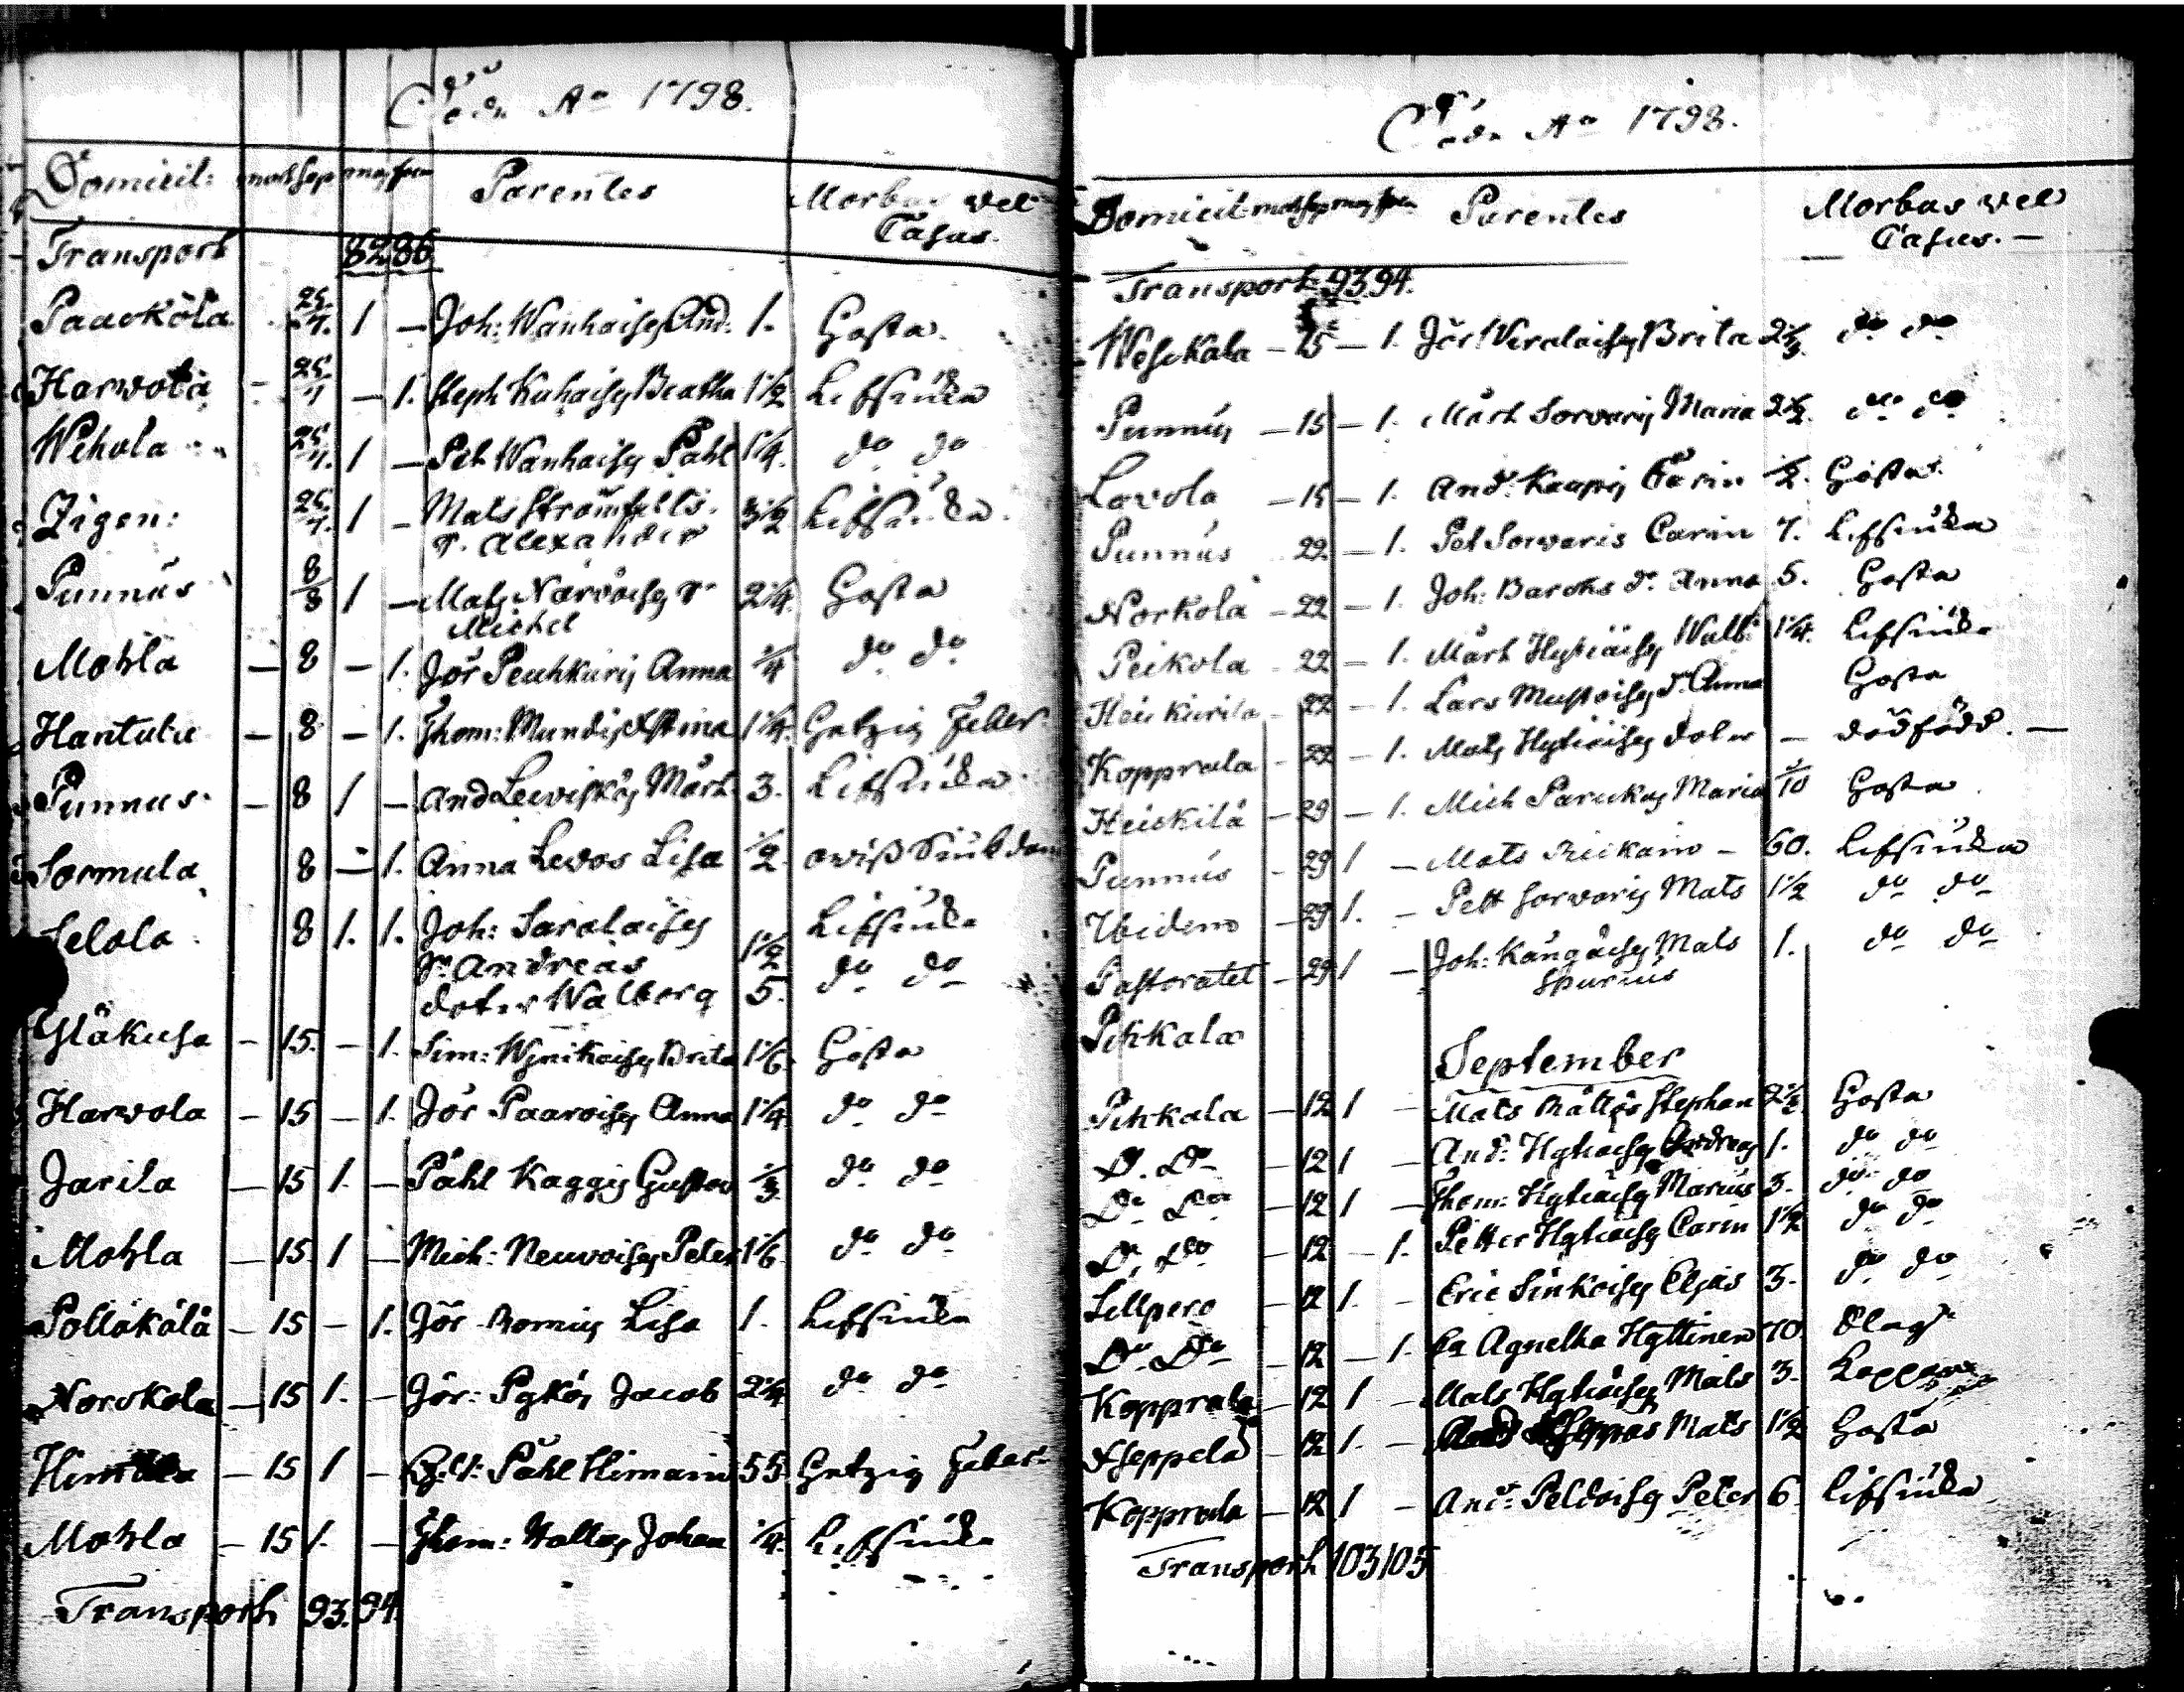 Döde Aº 1798.
Domicil: mort Sep mas foem Parentes Morbus vel
Casus.
Transport 82 86
Paavkola 25/7. 1 — Joh: Wanhaisen And. 1. Hosta
Harvola — 25/7 — 1. Steph Kuhaisen Beatha 1 1/2 Lefsiuka
Wehola 25/7. 1 — Pet Wanhaisen Påhl 1/4. do do
Zigen: 25/7. 1 — Mats Strömfelts
S. Alexander 3 1/2 Lefsiuka
Punnus 8/8 1 — Mats Närväisen S.
Michel 2 1/4. Hosta
Mohla — 8 — 1. Jör Peuhkurin Anna 1/4 do do
Hantula — 8 — 1. Thom: Mundin Stina 1 1/4. Hetzig Feber
Punnus — 8 1 — And Leviskön Mårt. 3. Lefsiuka
Sormula 8 — 1. Anna Levos Lisa 1/2 oviss Siukdom
Selola 8 1. 1. Joh: Saralaisen Lefsiuka
Sn Andreas 1 1/2
doter Walborg 5. do do
Yläkusa — 15. — 1. Sim: Wynikaisen Brita 1 1/6. Hosta
Harvola — 15 — 1. Jör Paavoisen Anna 1 1/4. do do
Jarila — 15 1. — Påhl Kaggin Gustav 1/3. do do
Mohla — 15 1 — Mich: Neuvoisen Peter 1 1/6 do do
Pölläkälä — 15 — 1. Jör Romin Lisa 1. Lefsiuka
Norokola — 15 1. — Jör: Pykön Jacob 2 1/4 do do
15 1 — Påhl Himain 55 Hetzig Feber
Mohla — 15 1. — Thom: Hallon Johan 1/4. Lefsiuka
Transport 93. 94.
Döde Aº 1798.
Domicil mort Sep mas foem Parentes Morbus vel
Casus. —
Transport 93 94.
Weskala — 15 — 1. Jör Viralaisen Brita 2 1/3 do do
Punnus — 15 — 1. Mårt Sorvarin Maria 2 1/2. do do
Lavola — 15 — 1. And: Kaupin Carin 1/2. Hosta
Punnus 22. — 1. Pet Sorvaris Carin 7. Lefsiuka
Norkola — 22 — 1. Joh: Barcks Dr Anna 5. Hosta
Peikola — 22 — 1. Mårt Hytiäisen Walb: 1 1/4. Lefsiuka
Heikurila — 22 — 1. Lars Mustoisen Dr Anna Hosta
Kopprala — 22 — 1. Mats Hytiäisen doter — dödfödd. —
Heiskilä — 29 — 1. Mich Parukas Maria Hosta
Punnus — 29 1 — Mats — 60. Lefsiuka
Ibidem — 29 1. — Pett Sorvarin Mats 1 1/2 do do
Pastoratet — 29 1 — Joh: Kangaisen Mats 1. do do
Spurius
Pihkala
September
Pihkala — 12 1 — Mats Rättön Stephan 2 1/2 Hosta
Do Do — 12 1 — And: Hytiäisen Andreas 1. do do
Do Do — 12 1 — Thom: Hytiäisen Marius 3. do do
Do Do — 12 — 1. Petter Hytiäisen Carin 1 1/2 do do
Lillpero — 12 1. — Eric Sinkoisen Elias 3. do do
Do Do — 12 — 1. Agnetha Hyttinen 70 Slag
Kopprala — 12 1 — Mats Hytiäisen Mats 3. Koppor
Kseppela — 12 1. — Mats 1 1/2 Hosta
Kopprala — 12 1 — And: Peldoisen Peter 6. Lifsiuka
Transport 103 105